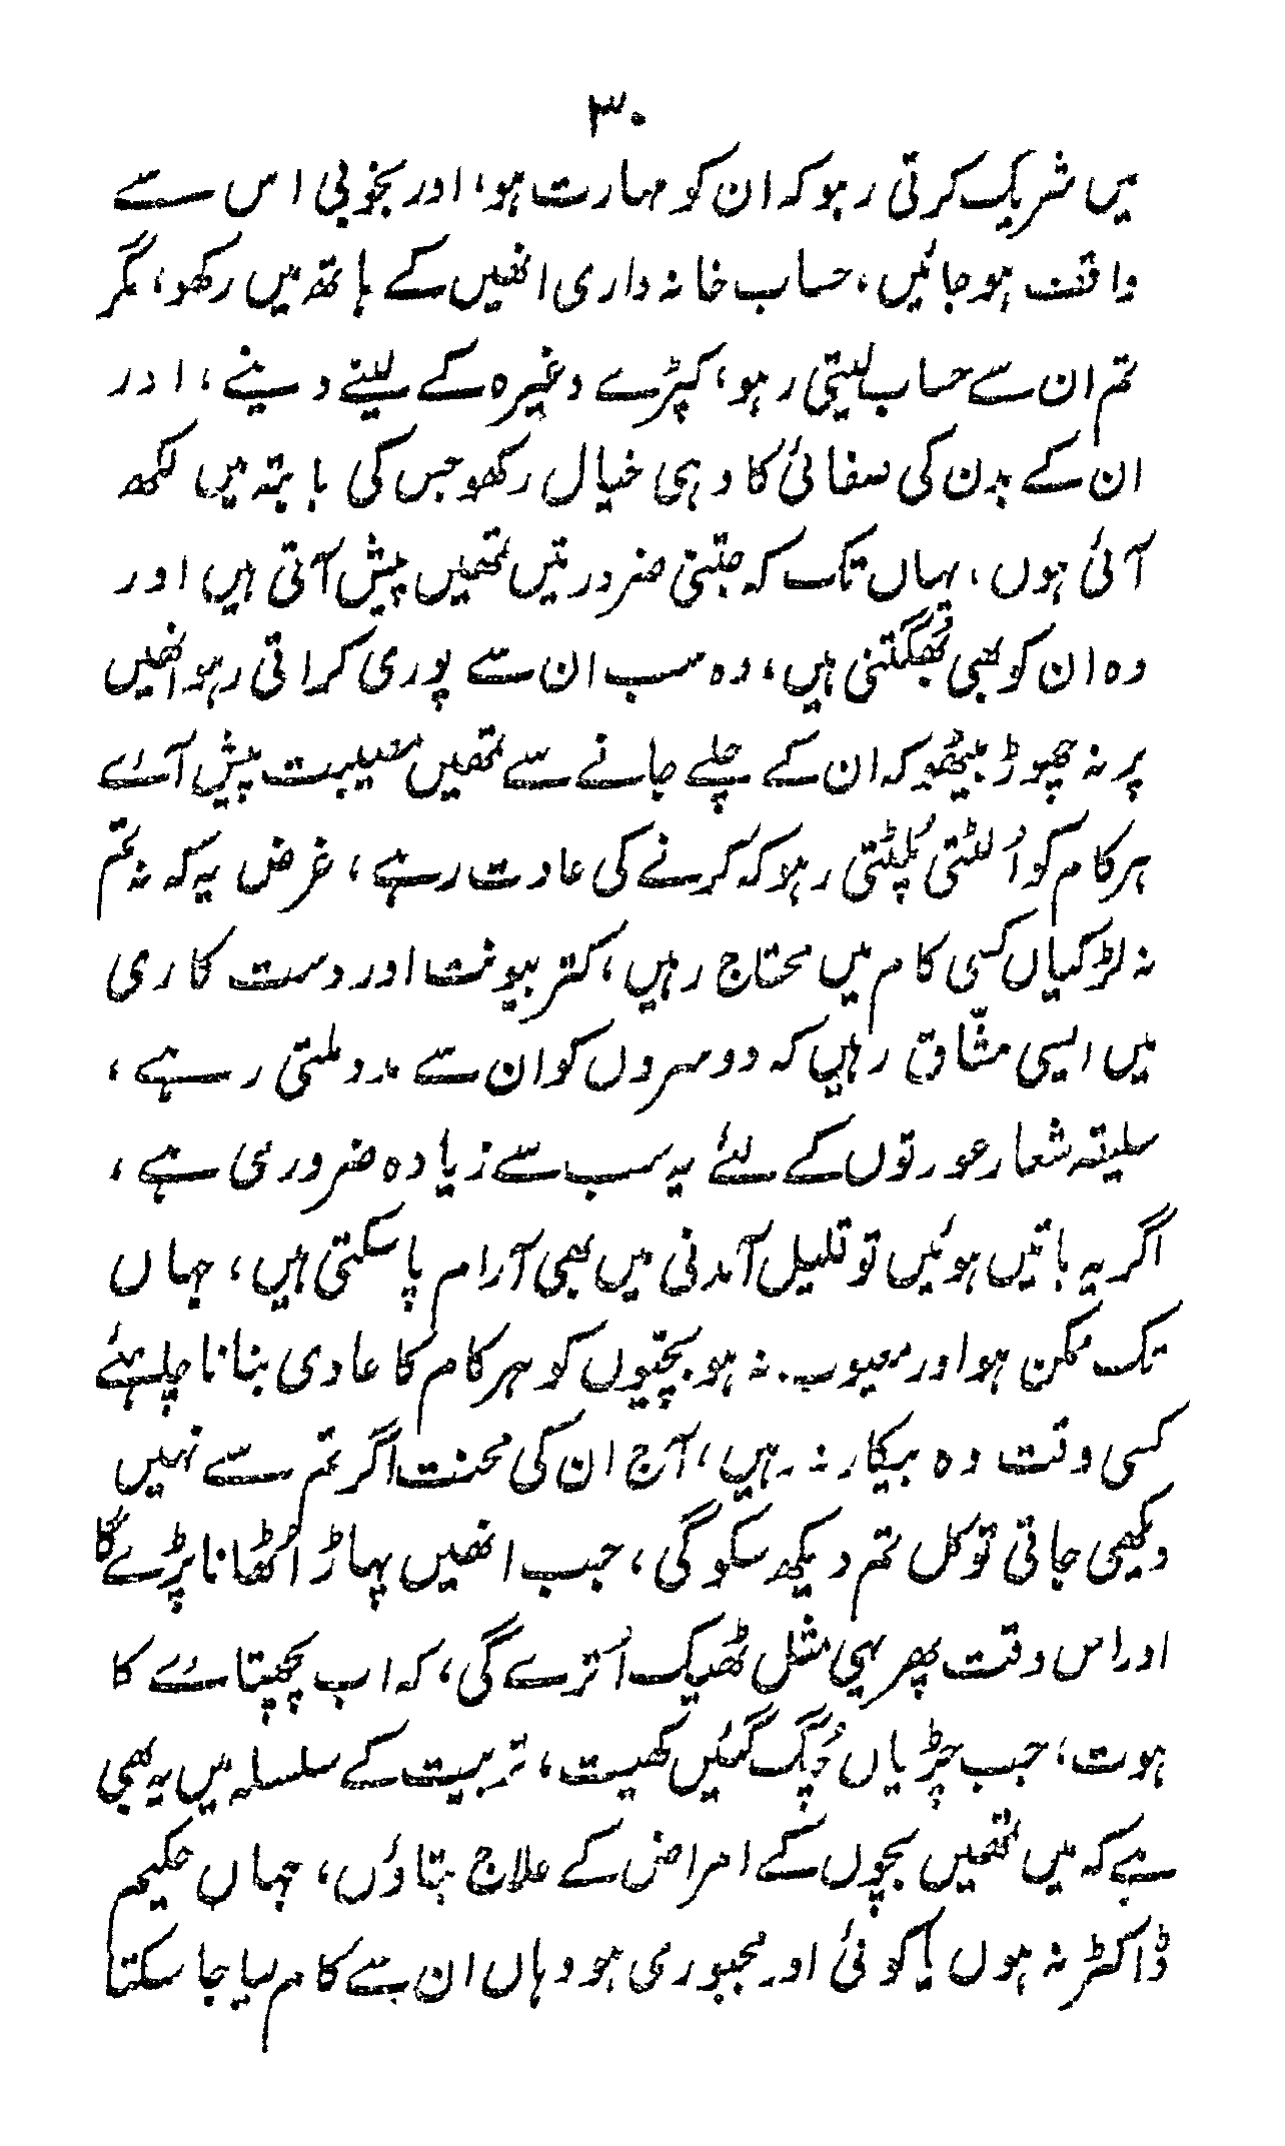 ۳۰
میں شریک کرتی رہو کہ ان کو مہارت ہو، اور بخوبی اس سے
واقف ہو جائیں، حساب خانہ داری انھیں کے ہاتھ میں رکھو، مگر
تم ان سے حساب لیتی رہو، کپڑے وغیرہ کے لینے دینے، اور
ان کے بدن کی صفائی کا وہی خیال رکھو جس کی بابتہ میں لکھ
آئی ہوں، یہاں تک کہ جتنی ضرورتیں تمھیں پیش آتی ہیں اور
وہ ان کو بھی بھگتنی ہیں، وہ سب ان سے پوری کراتی رہو انھیں
پر نہ چھوڑ بیٹھو کہ ان کے چلے جانے سے تمھیں مصیبت پیش آئے
ہر کام کو اُلٹتی پُلٹتی رہو کہ کرنے کی عادت رہے، غرض یہ کہ نہ تم
نہ لڑکیاں کسی کام میں محتاج رہیں، کتر بیونت اور دست کاری
میں ایسی مشّاق رہیں کہ دوسروں کو ان سے مدد ملتی رہے،
سلیقہ شعار عورتوں کے لئے یہ سب سے زیادہ ضروری ہے،
اگر یہ باتیں ہوئیں تو قلیل آمدنی میں بھی آرام پا سکتی ہیں، جہاں
تک ممکن ہو اور معیوب نہ ہو بچیوں کو ہر کام کا عادی بنانا چاہئے
کسی وقت وہ بیکار نہ رہیں، آج ان کی محنت اگر تم سے نہیں
دیکھی جاتی تو کل تم دیکھ سکو گی، جب انھیں پہاڑ اُٹھانا پڑے گا
اور اس وقت پھر یہی مثل ٹھیک اُترے گی، کہ اب پچھتائے کا
ہوت، جب چڑیاں چُگ گئیں کھیت، تربیت کے سلسلہ میں یہ بھی
ہے کہ میں تمھیں بچوں کے امراض کے علاج بتاؤں، جہاں حکیم
ڈاکٹر نہ ہوں یا کوئی اور مجبوری ہو وہاں ان سے کام لیا جا سکتا